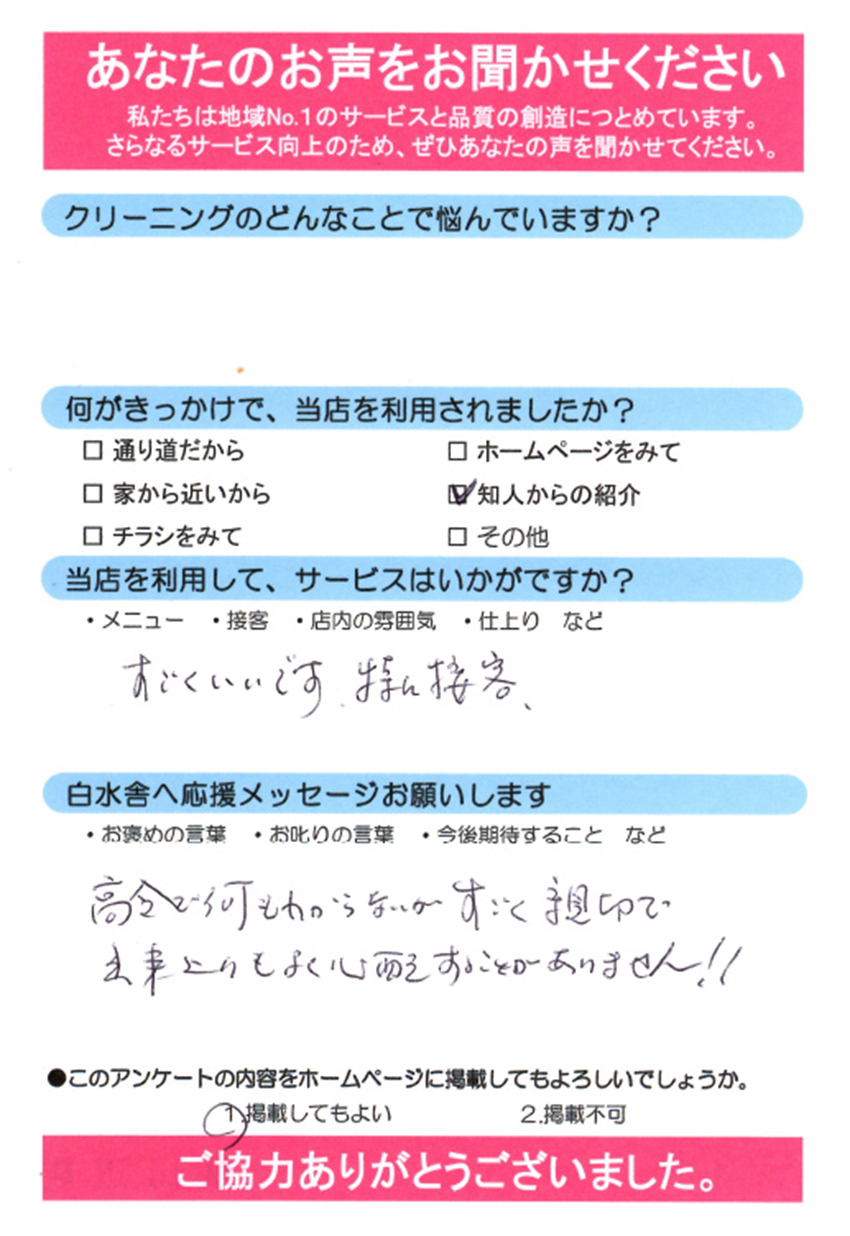 あなたのお声をお聞かせください
私たちは地域No.1のサービスと品質の創造につとめています。
さらなるサービス向上のため、ぜひあなたの声を聞かせてください。
クリーニングのどんなことで悩んでいますか？
何がきっかけで、当店を利用されましたか？
□ 通り道だから □ ホームページをみて
□ 家から近いから ☑ 知人からの紹介
□ チラシをみて □ その他
当店を利用して、サービスはいかがですか？
・メニュー ・接客 ・店内の雰囲気 ・仕上り など
すごくいいです、特に接客、
白水舎へ応援メッセージお願いします
・お褒めの言葉 ・お叱りの言葉 ・今後期待すること など
高令で何もわからないがすごく親切で
出来上りもよく心配することがありません!!
●このアンケートの内容をホームページに掲載してもよろしいでしょうか。
1.掲載してもよい 2.掲載不可
ご協力ありがとうございました。